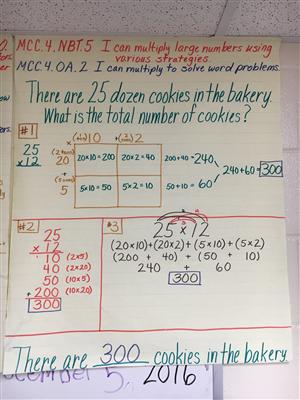 MCC.4.NBT.5 I can multiply large numbers using
various strategies.
MCC.4.OA.2 I can multiply to solve word problems.
There are 25 dozen cookies in the bakery.
What is the total number of cookies?
#1
25
x12
x 10 + 2
(2 tens)
20
+
(5 ones)
5
20x10=200
20x2=40
5x10=50
5x2=10
200+40=240
50+10=60
240+60=300
#2
25
x 12
10 (2x5)
40 (2x20)
50 (10x5)
+ 200 (10x20)
300
#3
25 x 12
(20x10)+(20x2)+(5x10)+(5x2)
(200 + 40) + (50 + 10)
240 + 60
300
There are 300 cookies in the bakery
5, 2016